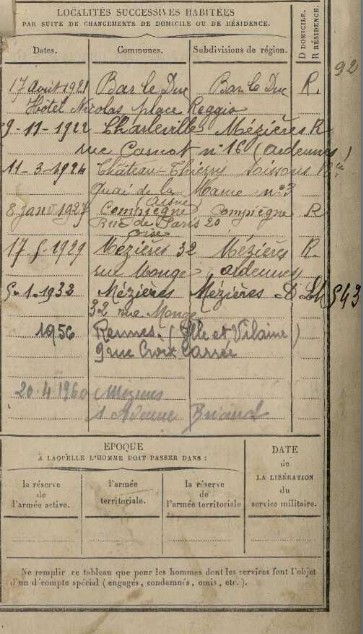 LOCALITÉS SUCCESSIVES HABITÉES
PAR SUITE DE CHANGEMENTS DE DOMICILE OU DE RÉSIDENCE.
Dates. Communes. Subdivisions de région. D DOMICILE. R RÉSIDENCE.
92
17 Août 1921 Bar le Duc Bar le Duc R.
Hôtel Nicolas place Reggio
9-11-1922 Charleville Mézières R
rue Carnot n° 16 (Ardennes)
11-3-1924 Château-Thierry Soissons R
Quai de la Marne n° 3
Aisne
8 janv 1927 Compiègne Compiègne R
Rue de Paris 20
Oise
17-5-1929 Mézières 32 Mézières R.
rue Monge Ardennes
5-1-1933 Mézières Mézières D 543
32 rue Monge
1956 Rennes. (Ille et Vilaine)
9 rue Croix Carrée
20.4.1960 Mézières
1 Briand
EPOQUE
À LAQUELLE L'HOMME DOIT PASSER DANS :
DATE
de
LA LIBÉRATION
du
service militaire.
la réserve
de
l'armée active.
l'armée
territoriale.
la réserve
de
l'armée territoriale
Ne remplir ce tableau que pour les hommes dont les services font l'objet
d'un d'compte spécial (engagés, condamnés, omis, etc.).